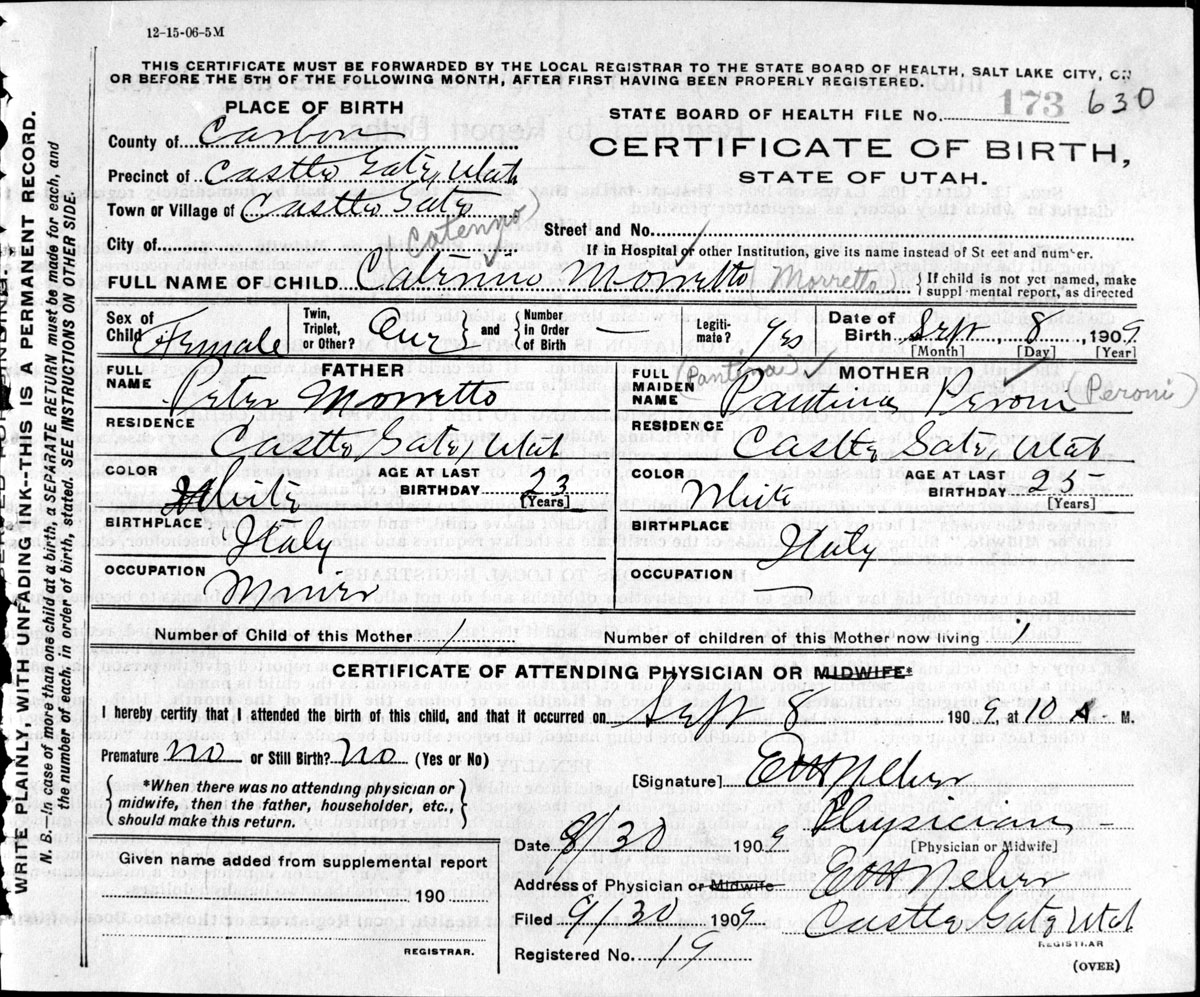 12-15-06-5M
THIS CERTIFICATE MUST BE FORWARDED BY THE LOCAL REGISTRAR TO THE STATE BOARD OF HEALTH, SALT LAKE CITY, ON
OR BEFORE THE 5TH OF THE FOLLOWING MONTH, AFTER FIRST HAVING BEEN PROPERLY REGISTERED.
PLACE OF BIRTH
STATE BOARD OF HEALTH FILE No. 173 630
County of Carbon
CERTIFICATE OF BIRTH,
Precinct of Castle Gate, Utah
STATE OF UTAH.
Town or Village of Castle Gate
Street and No.
City of
(Catenno)
If in Hospital or other Institution, give its name instead of St eet and number.
FULL NAME OF CHILD Morretto (Morretto)
If child is not yet named, make suppl mental report, as directed
Sex of Child Female
Twin, Triplet, or Other?
and
Number in Order of Birth —
Legiti-mate? yes
Date of Birth Sept, 8, 1909
[Month] [Day] [Year]
FATHER
FULL NAME Peter Morretto
RESIDENCE Castle Gate, Utah
COLOR White
AGE AT LAST BIRTHDAY 23 [Years]
BIRTHPLACE Italy
OCCUPATION Miner
MOTHER
FULL MAIDEN NAME (Pantina) Pantina Peroni (Peroni)
RESIDENCE Castle Gate, Utah
COLOR White
AGE AT LAST BIRTHDAY 25 [Years]
BIRTHPLACE Italy
OCCUPATION
Number of Child of this Mother 1
Number of children of this Mother now living 1
CERTIFICATE OF ATTENDING PHYSICIAN OR MIDWIFE*
I hereby certify that I attended the birth of this child, and that it occurred on Sept 8 1909, at 10 A. M.
Premature no or Still Birth? no (Yes or No)
*When there was no attending physician or midwife, then the father, householder, etc., should make this return.
[Signature]
Physician
[Physician or Midwife]
Date 9/30 1909
Address of Physician or Midwife
Filed 9/30 1909 Castle Gate Utah
REGISTRAR
Registered No. 19
(OVER)
Given name added from supplemental report
190
REGISTRAR.
WRITE PLAINLY, WITH UNFADING INK--THIS IS A PERMANENT RECORD.
N. B. In case of more than one child at a birth, a SEPARATE RETURN must be made for each, and
the number of each, in order of birth, stated. SEE INSTRUCTIONS ON OTHER SIDE.